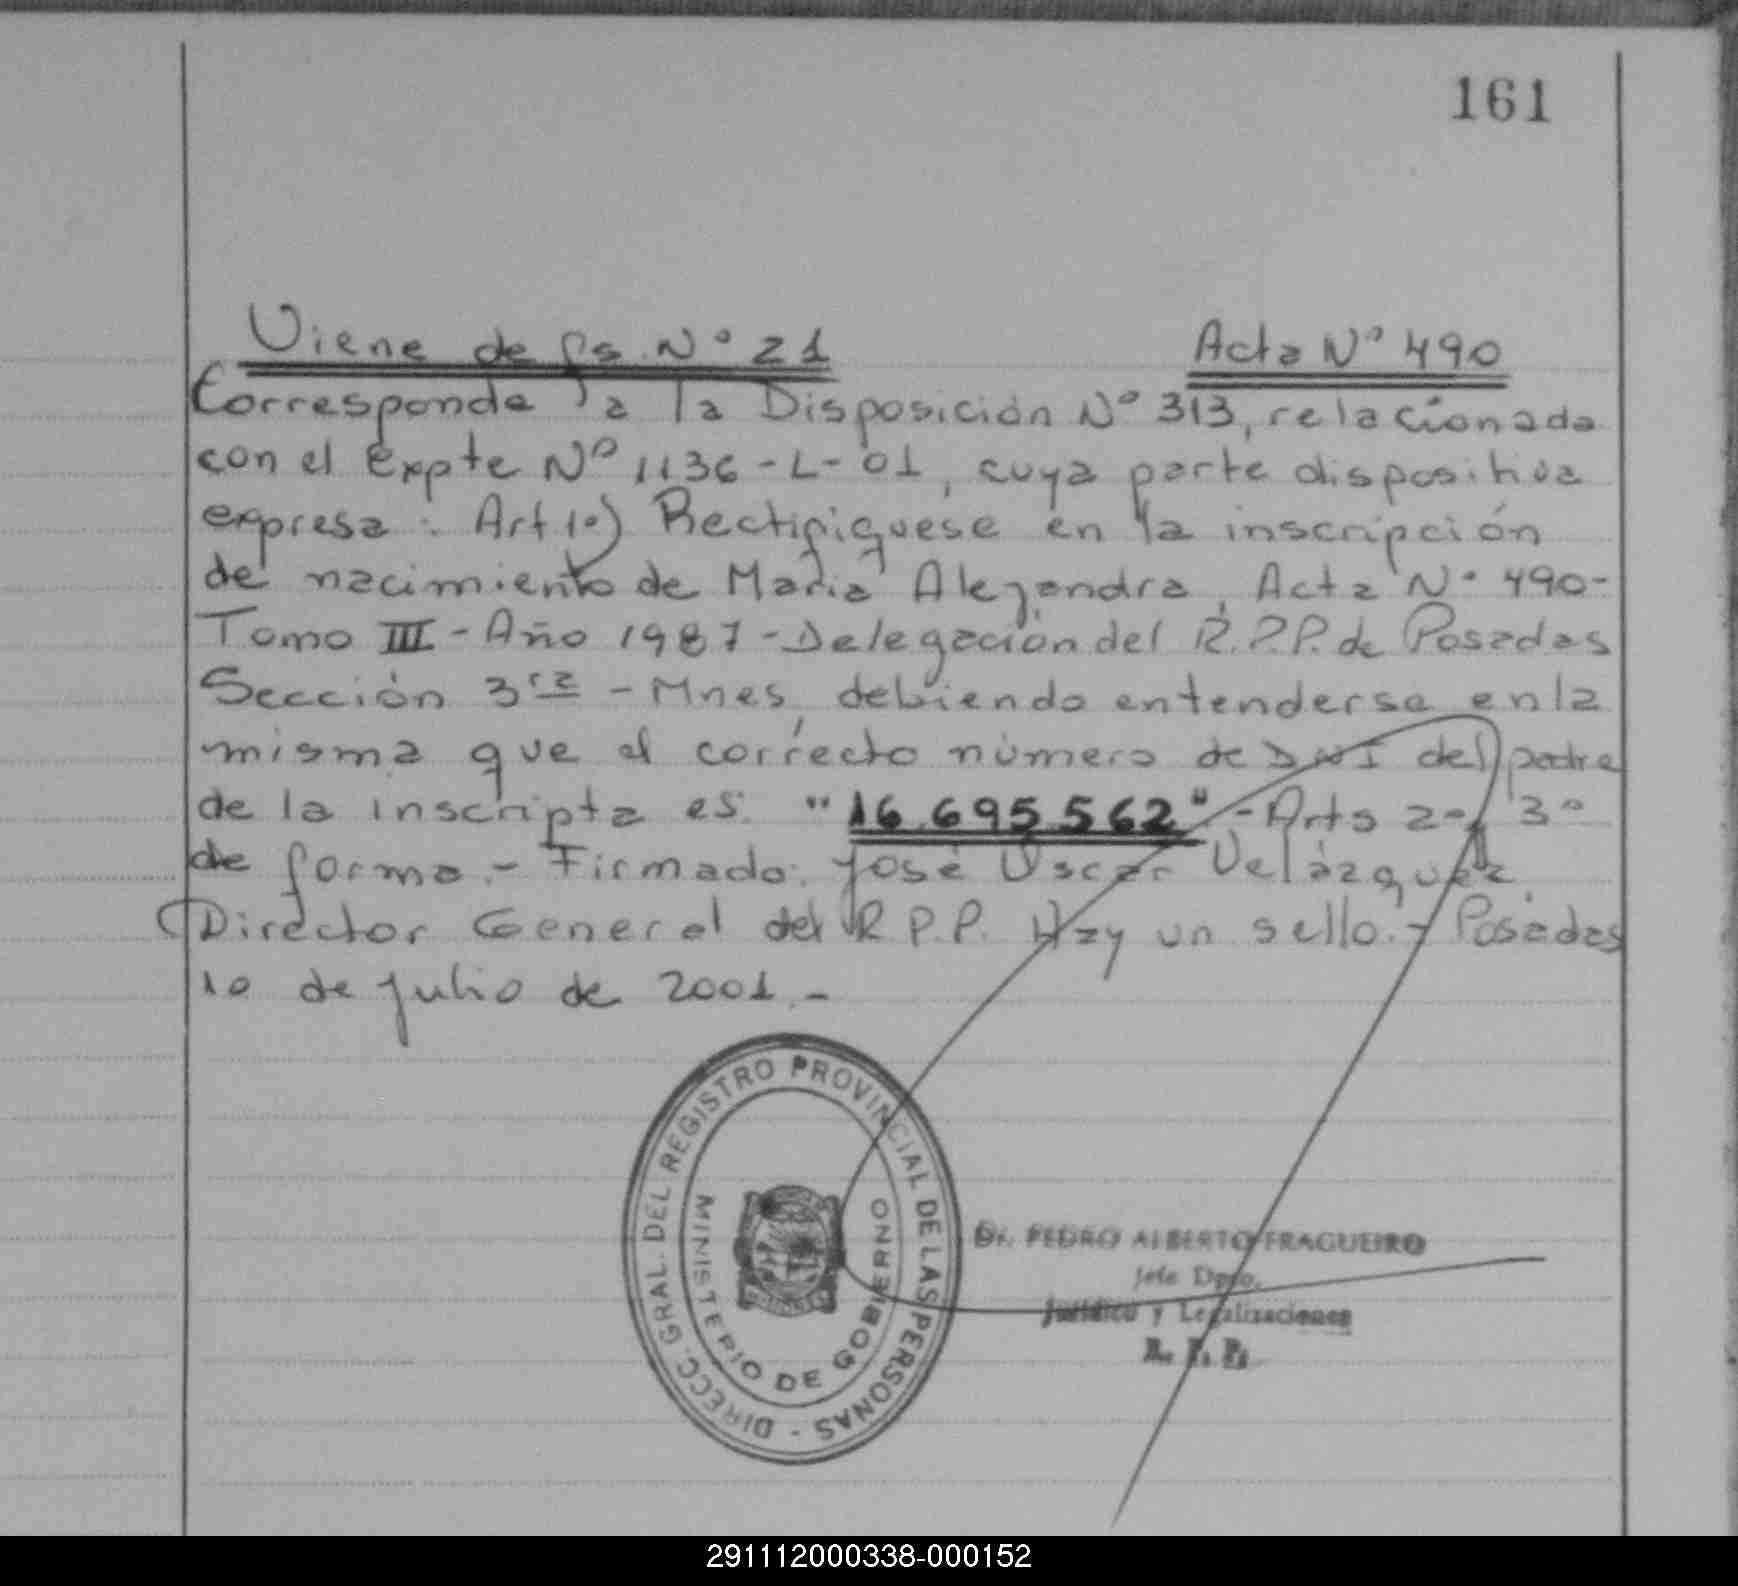 161
Viene de fs. Nº 21
Acta Nº 490
Corresponde a la Disposición Nº 313, relacionada
con el Expte Nº 1136-L-01, cuya parte dispositiva
expresa: Art 1º) Rectifiquese en la inscripción
de nacimiento de Maria Alejandra, Acta Nº 490-
Tomo III - Año 1987 - Delegación del R.P.P. de Posadas
Sección 3ra - Mnes, debiendo entenderse en la
misma que el correcto número de DNI del padre
de la inscripta es: "16.695.562" - Arts 2- 3º
de forma.- Firmado: José Oscar Velázquez.
Director General del R.P.P. Hay un sello.- Posadas
10 de julio de 2001.-
DIRECC. GRAL. DEL REGISTRO PROVINCIAL DE LAS PERSONAS -
MINISTERIO DE GOBIERNO
Dr. PEDRO ALBERTO FRAGUEIRO
Jefe Dpto.
Jurídico y Legalizaciones
R. P. P.
291112000338-000152